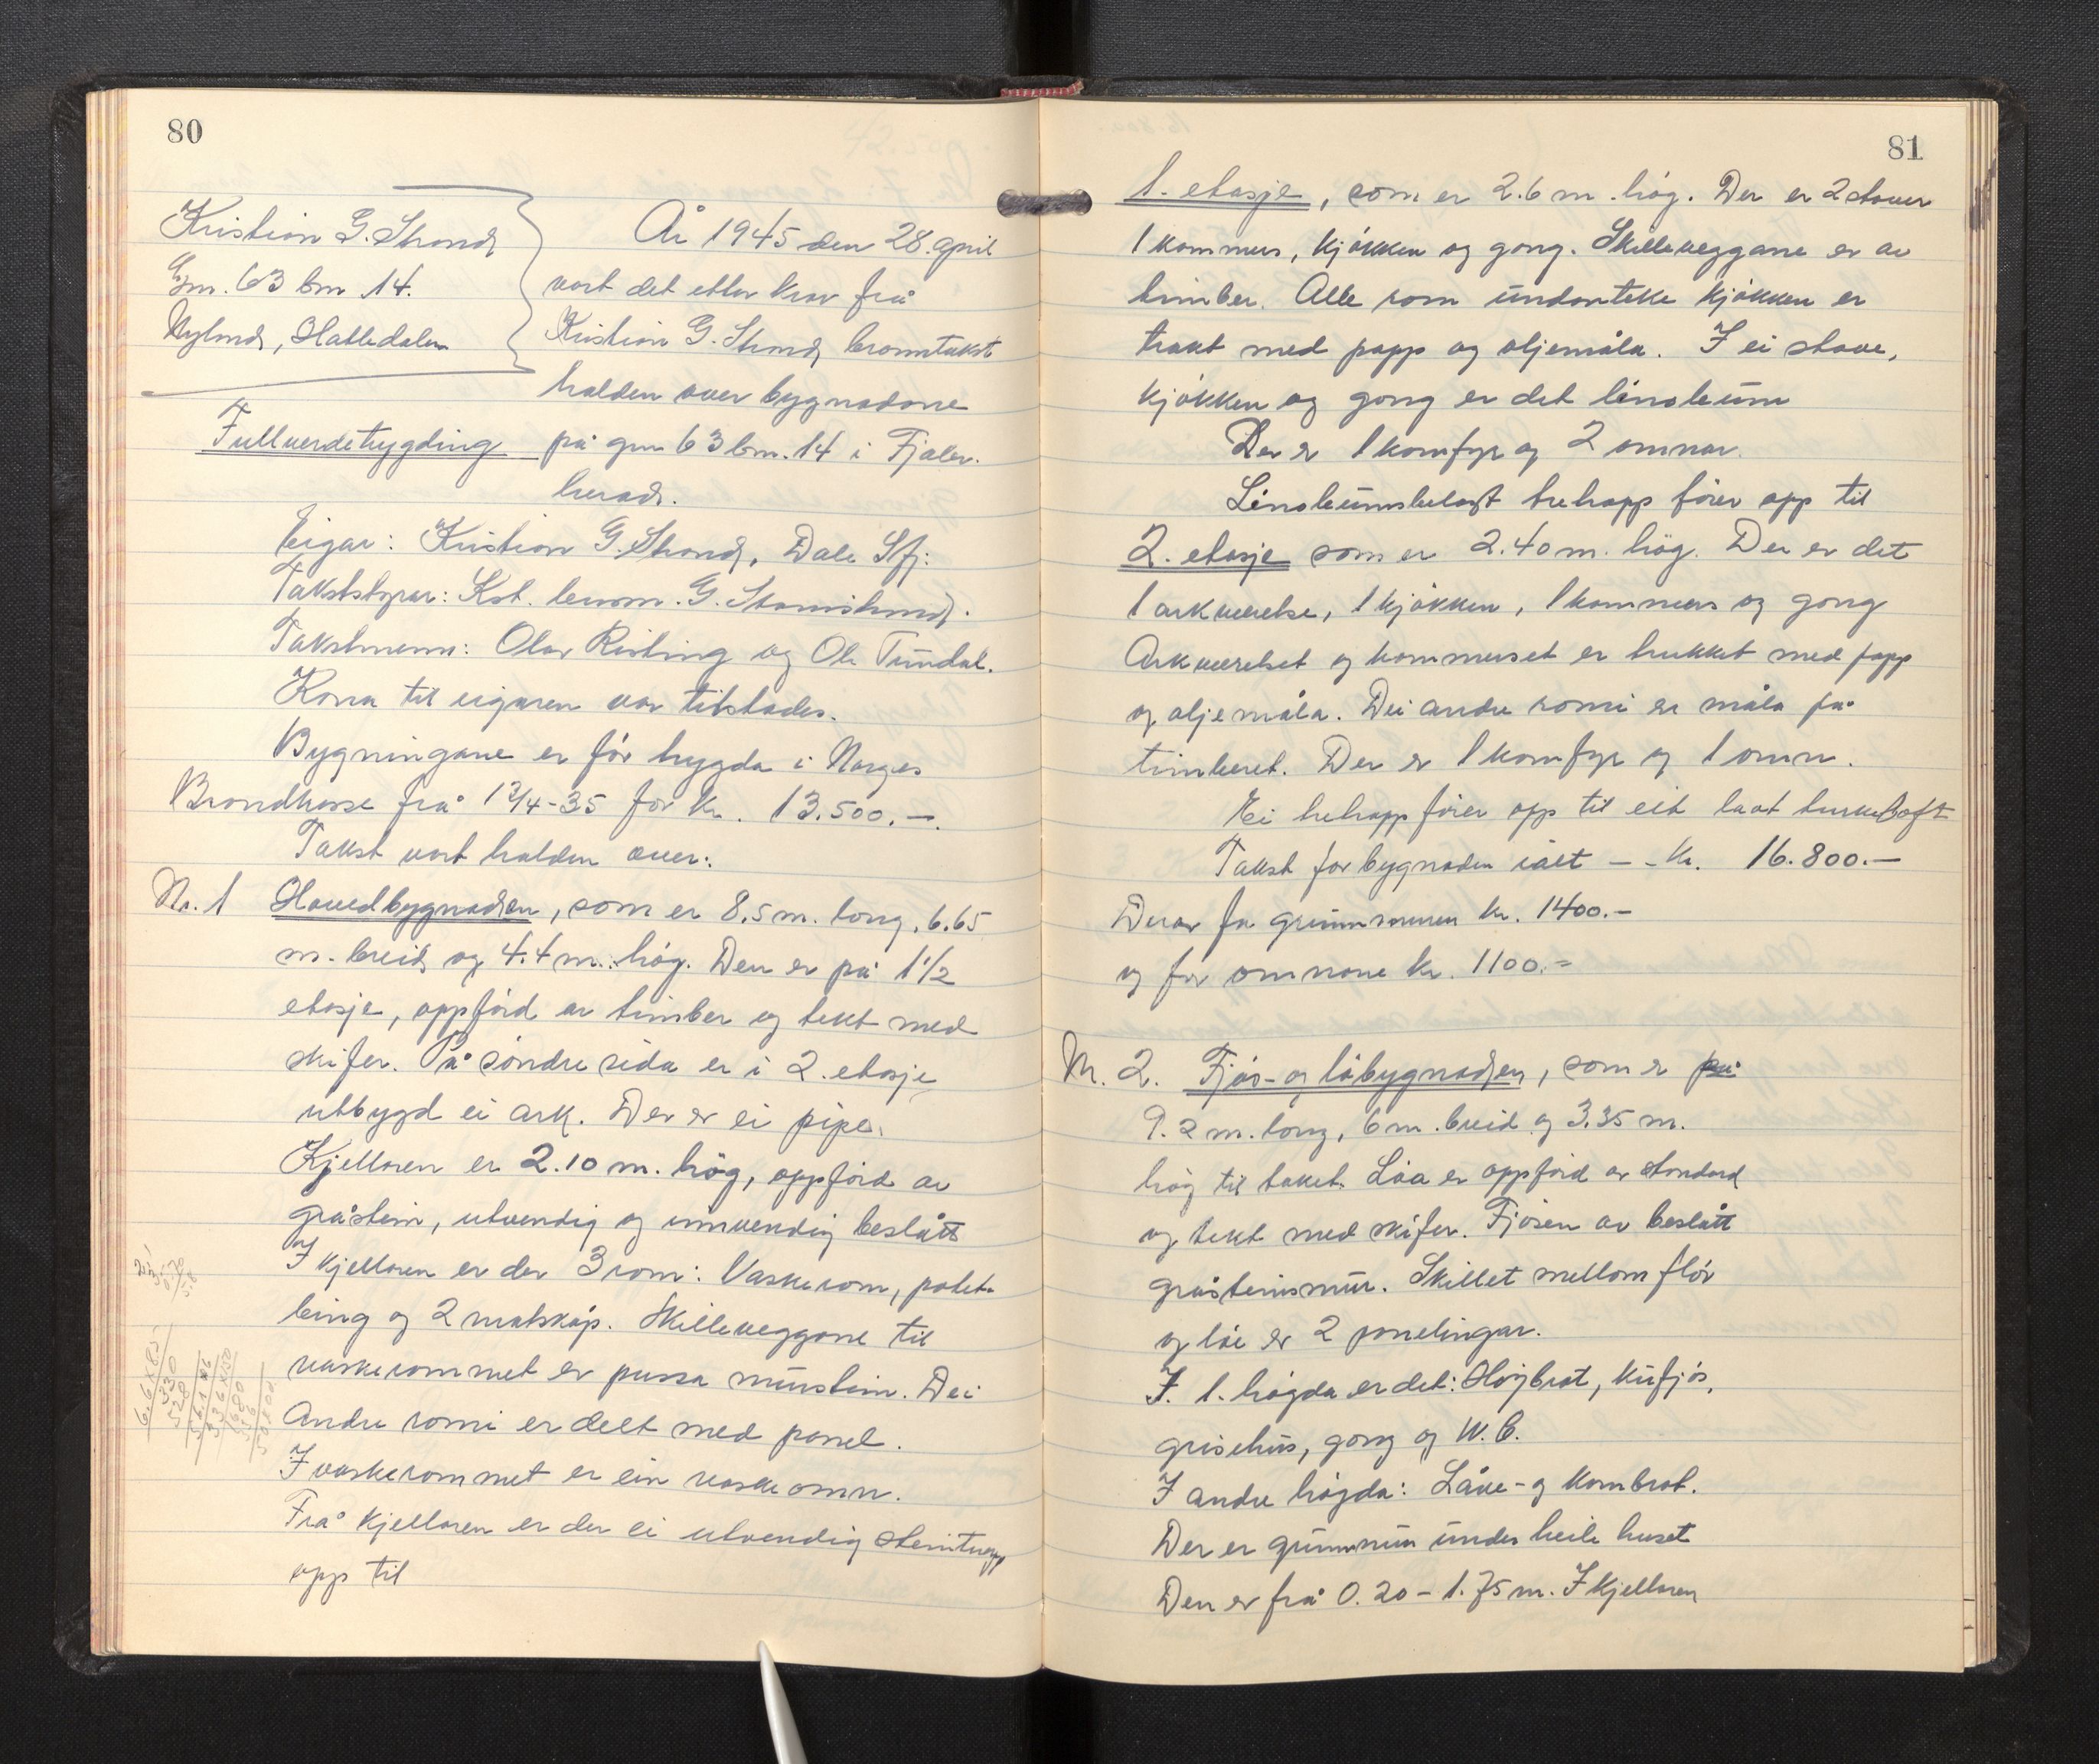 80
Kristian G. Strand,
Gnr. 63 bnr. 14.
Nylund, Hatledalen
Fullverdetrygding
År 1945 den 28. april
vart det etter krav frå
Kristian G. Strand branntakst
halden over bygnadane
på gnr 63 bnr. 14 i Fjaler
herad.
Eigar: Kristian G. Strand, Dale Sfj:
Takststyrar: Kst. lensm. G.
Takstmenn: Olav Risting og Ole Tundal.
Kona til eigaren var tilstades.
Bygningane er før trygda i Norges
Brandkasse frå 13/4-35 for kr. 13.500.-.
Takst vart halden over:
Nr. 1 Hovedbygnaden, som er 8.5 m. lang, 6.65
m. breid og 4.4 m. høg. Den er på 1 1/2
etasje, oppførd av timber og tekt med
skifer. På søndre sida er i 2. etasje
utbygd ei ark. Der er ei pipe.
Kjellaren er 2.10 m. høg, oppførd av
gråstein, utvendig og innvendig beslått
I kjellaren er der 3 rom: Vaskerom, potet-
bing og 2 matskåp. Skilleveggane til
vaskerommet er pussa murstein. Dei
andre romi er delt med panel.
I vaskerommet er ein vaskeomn.
Frå kjellaren er der ei utvendig steintrapp
opp til
81
1. etasje, som er 2.6 m. høg. Der er 2 stover
1 kammers, kjøkken og gang. Skilleveggane er av
timber. Alle rom undanteke kjøkken er
trekt med papp og oljemåla. I ei stove,
kjøkken og gang er det linoleum
Der er 1 komfyr og 2 omnar.
Linoleumsbelagt tretrapp fører opp til
2. etasje som er 2.40 m. høg. Der er det
1 arkværelse, 1 kjøkken, 1 kammers og gang
Arkværelset og kammerset er trukket med papp
og oljemåla. Dei andre romi er måla på
timberet. Der er 1 komfyr og 1 omn.
Ei tretrapp fører opp til eit lavt turkeloft
Takst for bygnaden ialt - - Kr. 16.800.-
Derav for grunnmuren kr. 1400.-
og for omnane kr. 1100.-
Nr. 2. Fjøs- og låbygnaden, som er på
9.2 m. lang, 6 m. breid og 3.35 m.
høg til taket. Løa er oppførd av standard
og tekt med skifer. Fjøsen av beslått
gråsteinsmur. Skillet mellom flor
og løe er 2 panelingar.
I 1. høgda er det: Høybrot, kufjøs,
grisehus, gang og W.C.
I andre høgda: Låve- og kornbrot.
Der er grunnmur under heile huset
Den er frå 0.20 - 1.75 m. I kjellaren